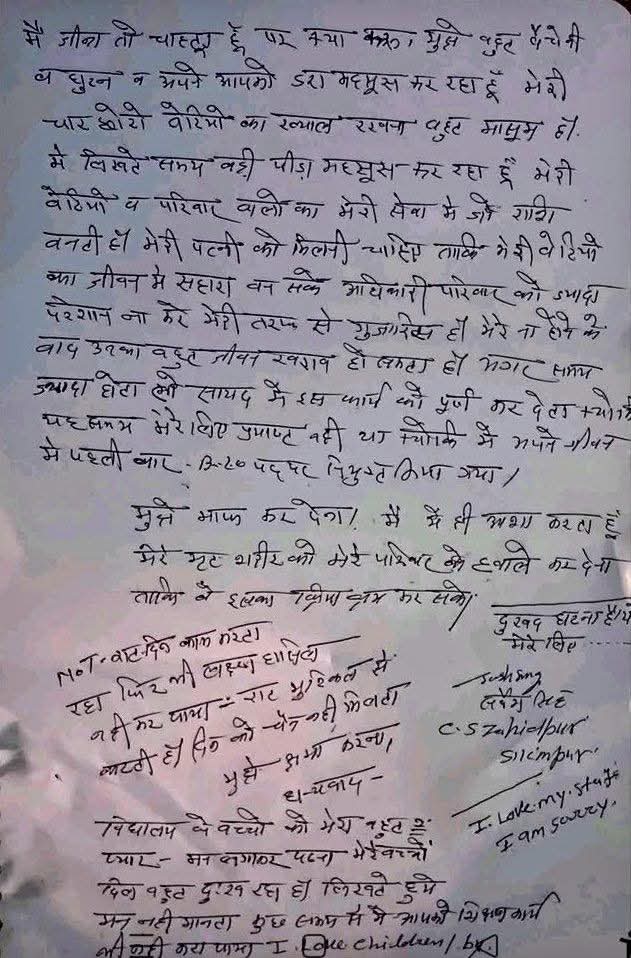 मै जीना तो चाहता हूँ पर क्या करू, मुझे बहुट बैचेनी
व घुटन व अपने आपको डरा महसूस कर रहा हूँ मेरी
चार छोटी बेटियो का ख्याल रखना बहुट मासूम है।
मै लिखते समय वही पीड़ा महसूस कर रहा हूँ मेरी
बेटियो व परिवार वालो का मेरी सेवा मे जो राशि
बनटी हो मेरी पत्नी को मिलनी चाहिए ताकि मेरी बेटियो
का जीवन मे सहारा बन सके अधिकारी परिवार को ज्यादा
परेशान ना करे मेरी तरफ से गुजारिस है। मेरे ना होने के
बाद उनका बहुट जीवन खराब हो सकता है। अगर समय
ज्यादा होता तो सायद मै इस कार्य को पूर्ण कर देता क्योकि
यह समय मेरे लिए प्रयाप्ट नही था क्योकि मै अपने जीवन
मे पहली बार पद पर नियुक्त किया गया।
मुझे माफ कर देना। मै ये ही आशा करता हूँ
मेरे मृट शरीर को मेरे परिवार के हवाले कर देना
ताकि वे इसका क्रिया कर सके।
दुखद घटना है। ये
मेरे लिए
NOT- दिन काम करता
रहा फिर भी लक्ष्य हासिल
नही कर पाया - राट मुश्किल से
कटटी है। दिन को चैन नही मिलटा
मुझे क्षमा करना,
धन्यवाद -
सिंह
C.S Zahidpur
I. Love. my. staff
I am sorry.
विधालय के बच्चो को मेरा बहुट २
प्यार - मन लगाकर पढना मेरे बच्चों
दिल बहुट दुःख रहा है। लिखते हुये
मन नही मानता कुछ समय से मै आपको शिक्षण कार्य
भी नही करा पाया I. Love children / by